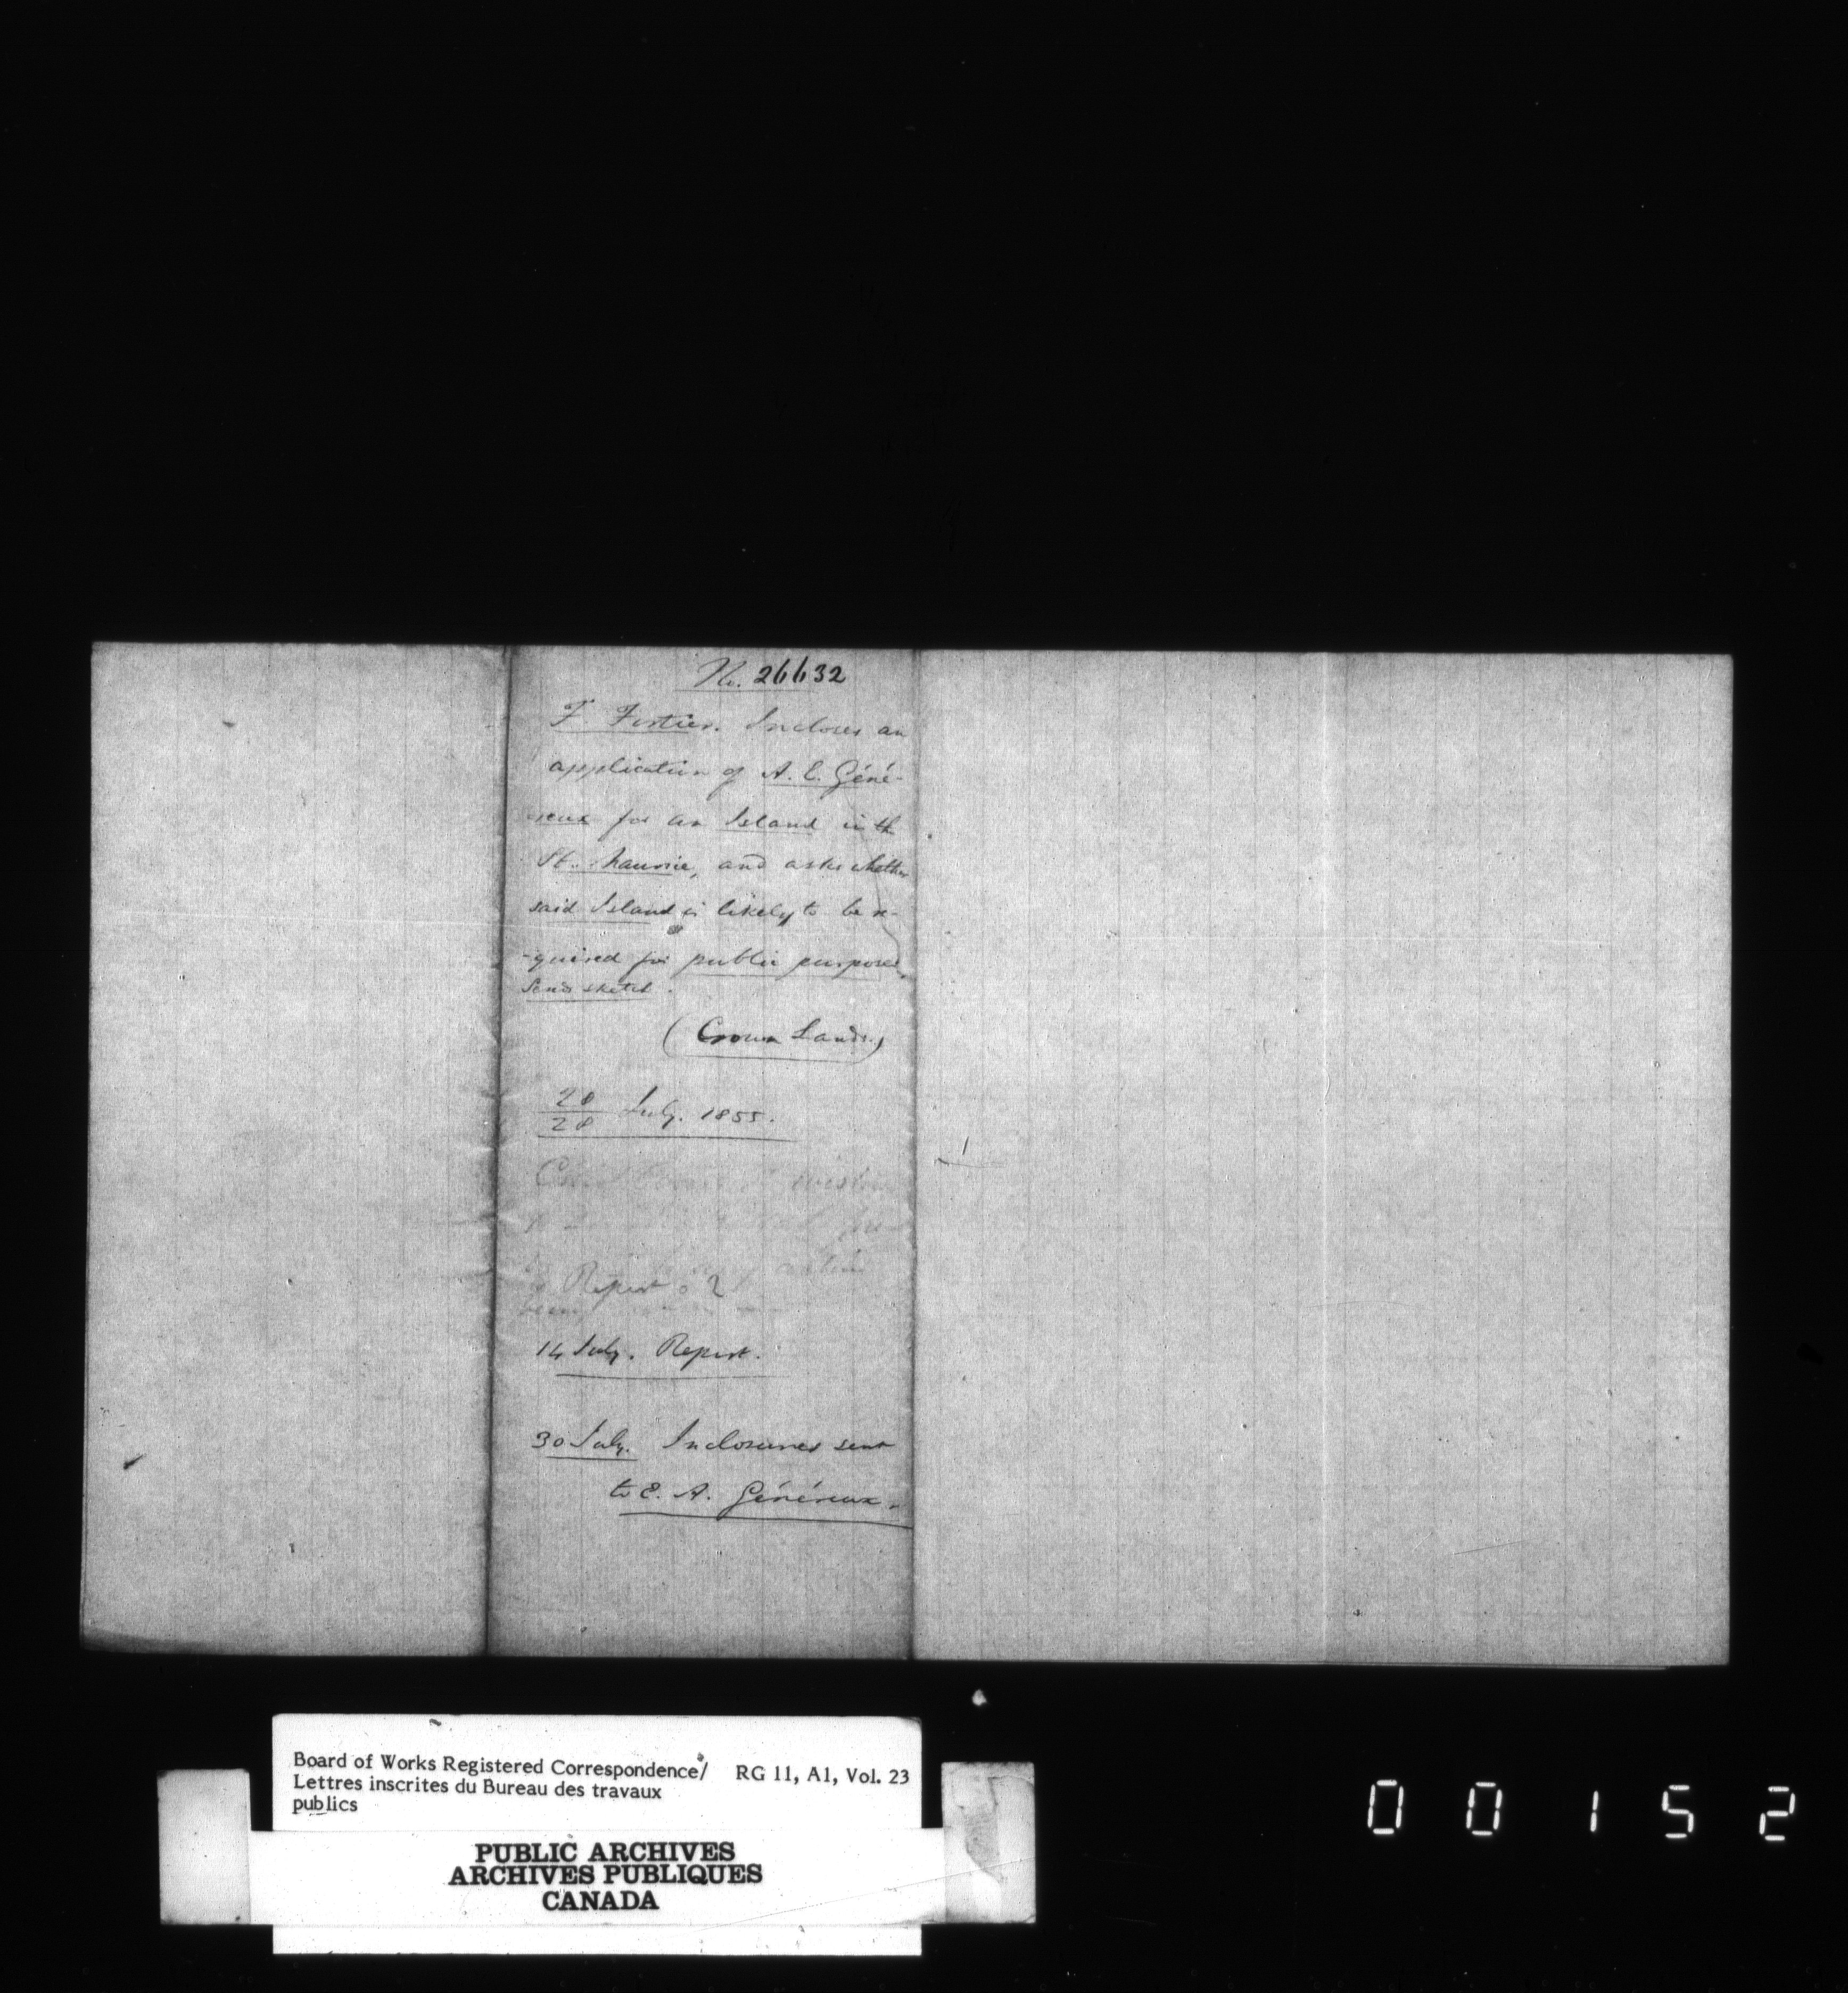 No. 26632
F. Fortier. Incloses an
application of A. E. Géné-
-reux for an Island in the
St. Maurice, and asks whether
said Island is likely to be re-
-quired for public purposes.
Send sketch.
(Crown Lands.)
28
28 July. 1855.
Report
14 July. Report.
30 July. Inclosures sent
to E. A. Généreux.
Board of Works Registered Correspondence/ RG 11, A1, Vol. 23
Lettres inscrites du Bureau des travaux
publics
PUBLIC ARCHIVES
ARCHIVES PUBLIQUES
CANADA
00152